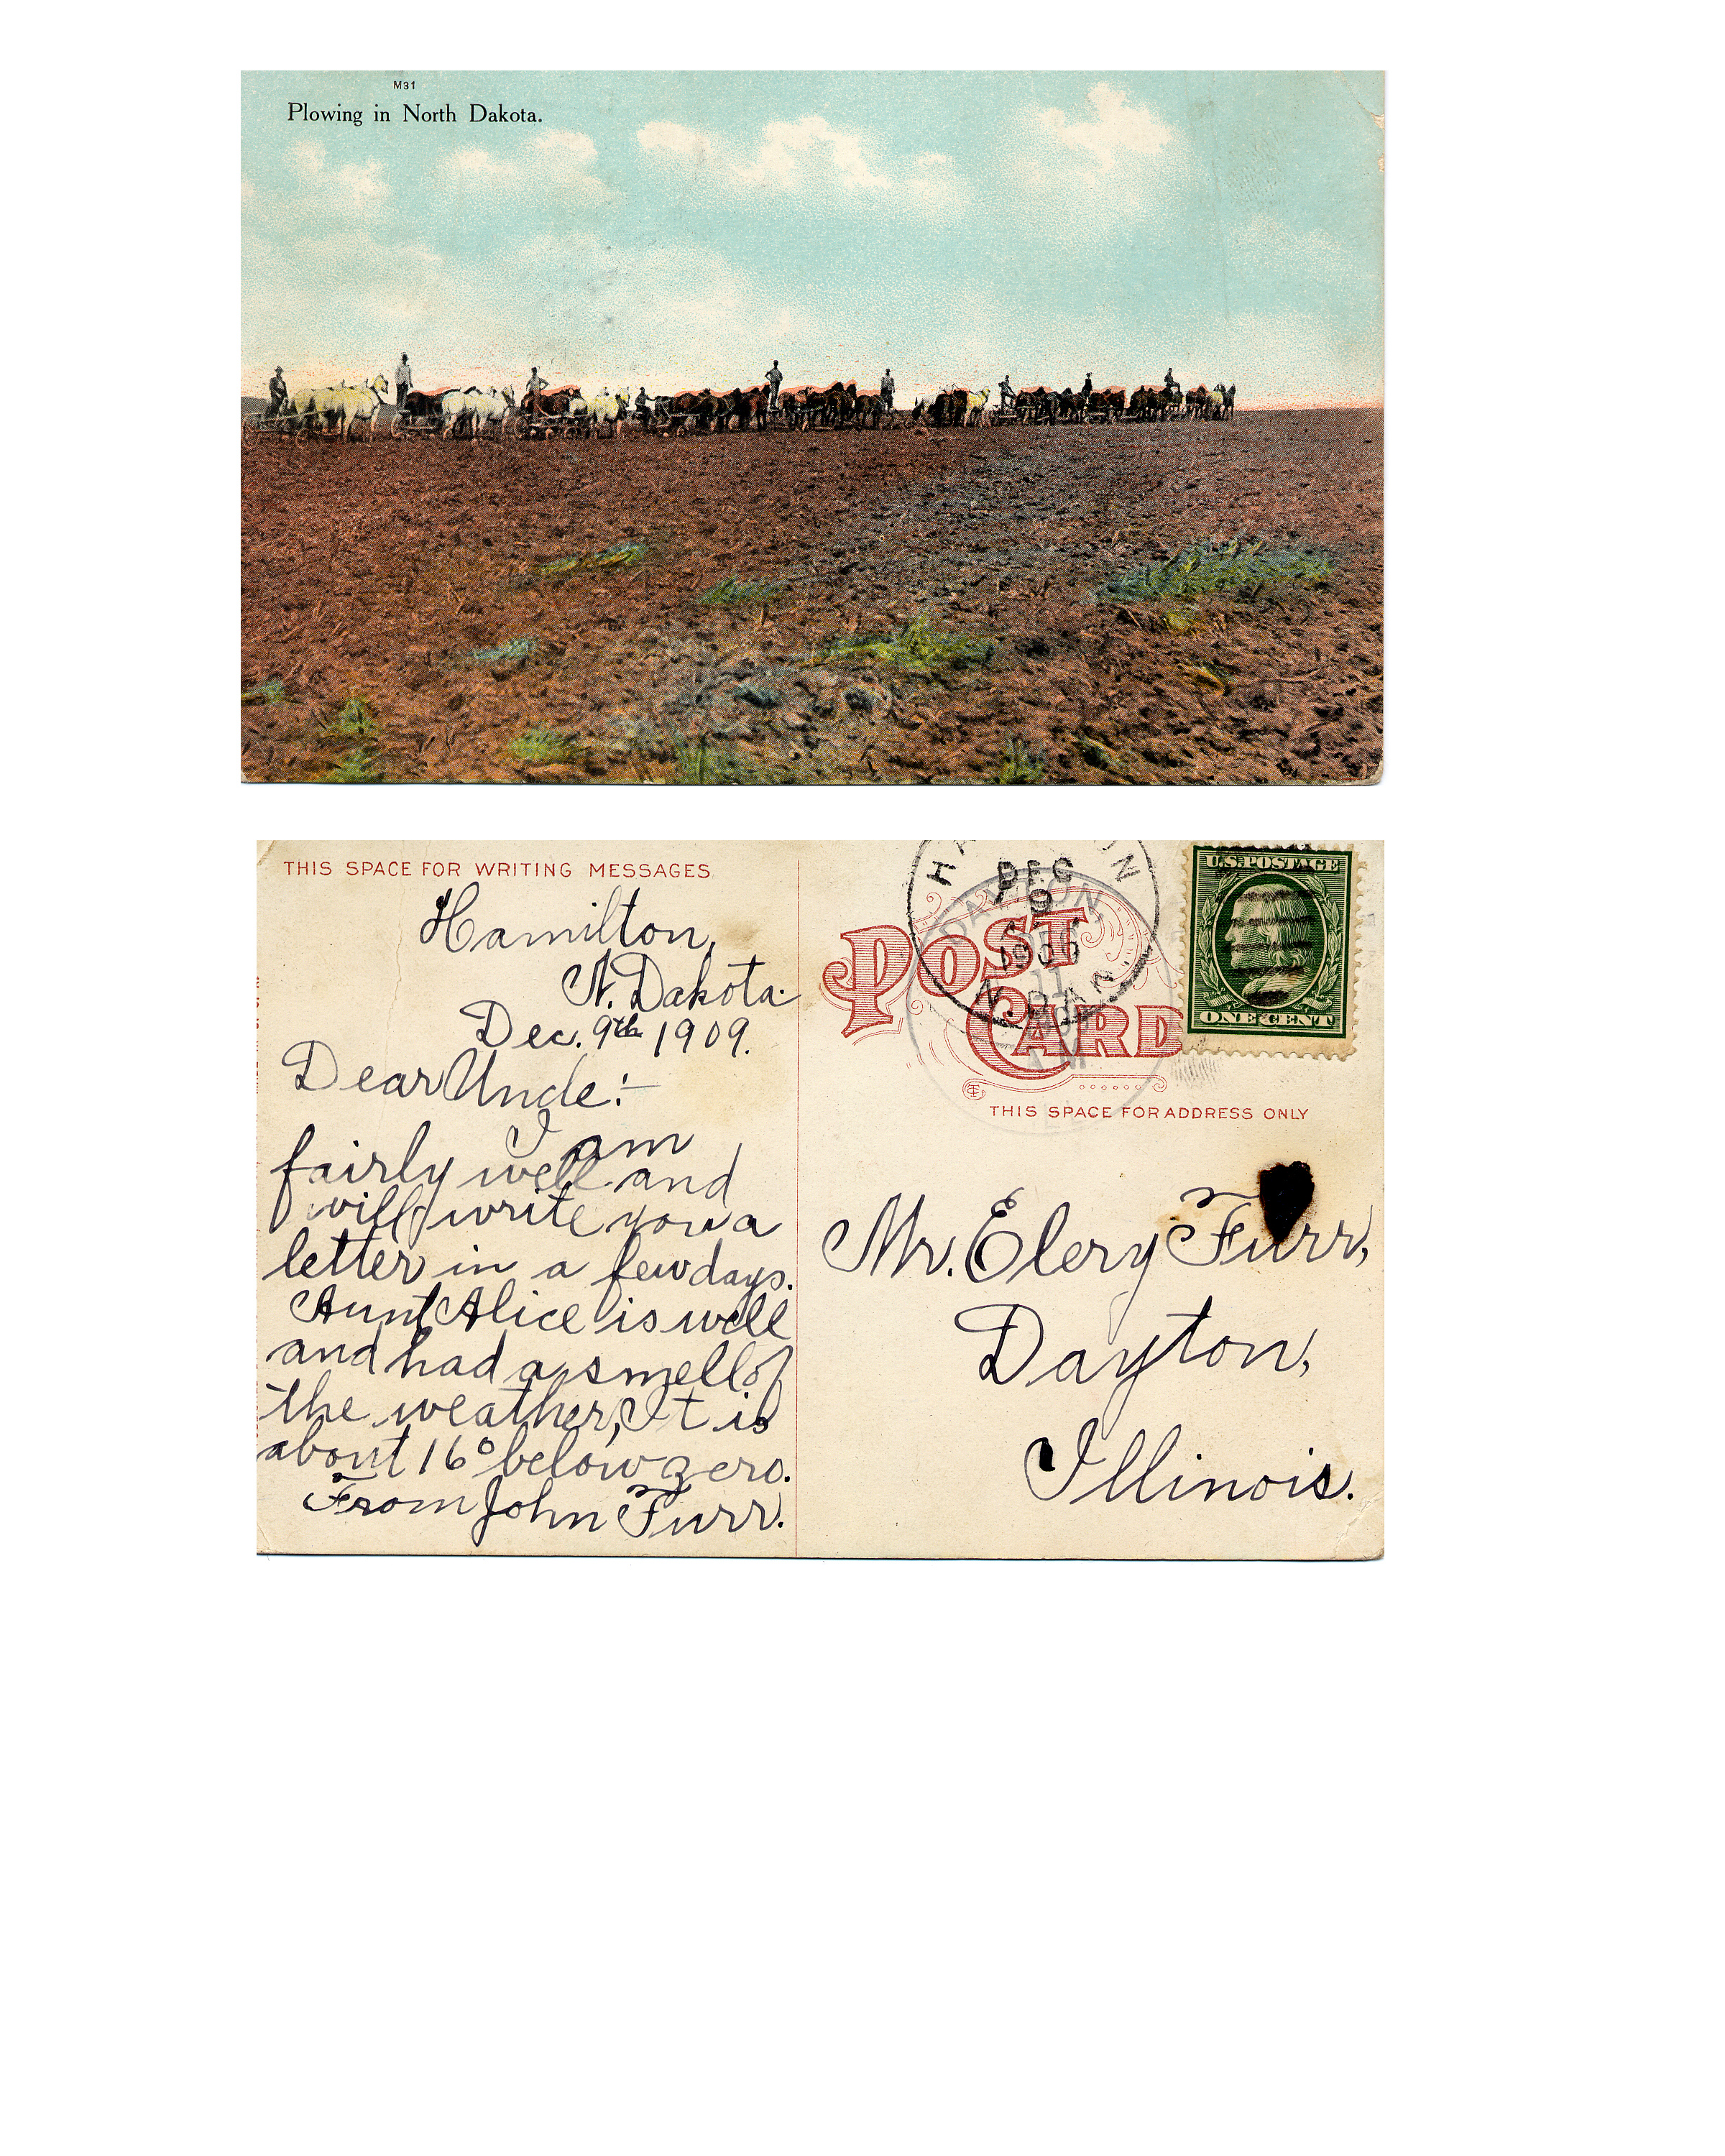 M31
Plowing in North Dakota.
THIS SPACE FOR WRITING MESSAGES
Hamilton,
N. Dakota.
Dec. 9th 1909.
Dear Uncle:-
I am
fairly well and
will write you a
letter in a few days.
Aunt Alice is well
and had a smell of
the weather, It is
about 16° below zero.
From John Furr.
DEC
9
N. DAK.
DAYTON,
11
U.S. POSTAGE
ONE CENT
POST
CARD
THIS SPACE FOR ADDRESS ONLY
Mr. Elery Furr,
Dayton,
Illinois.